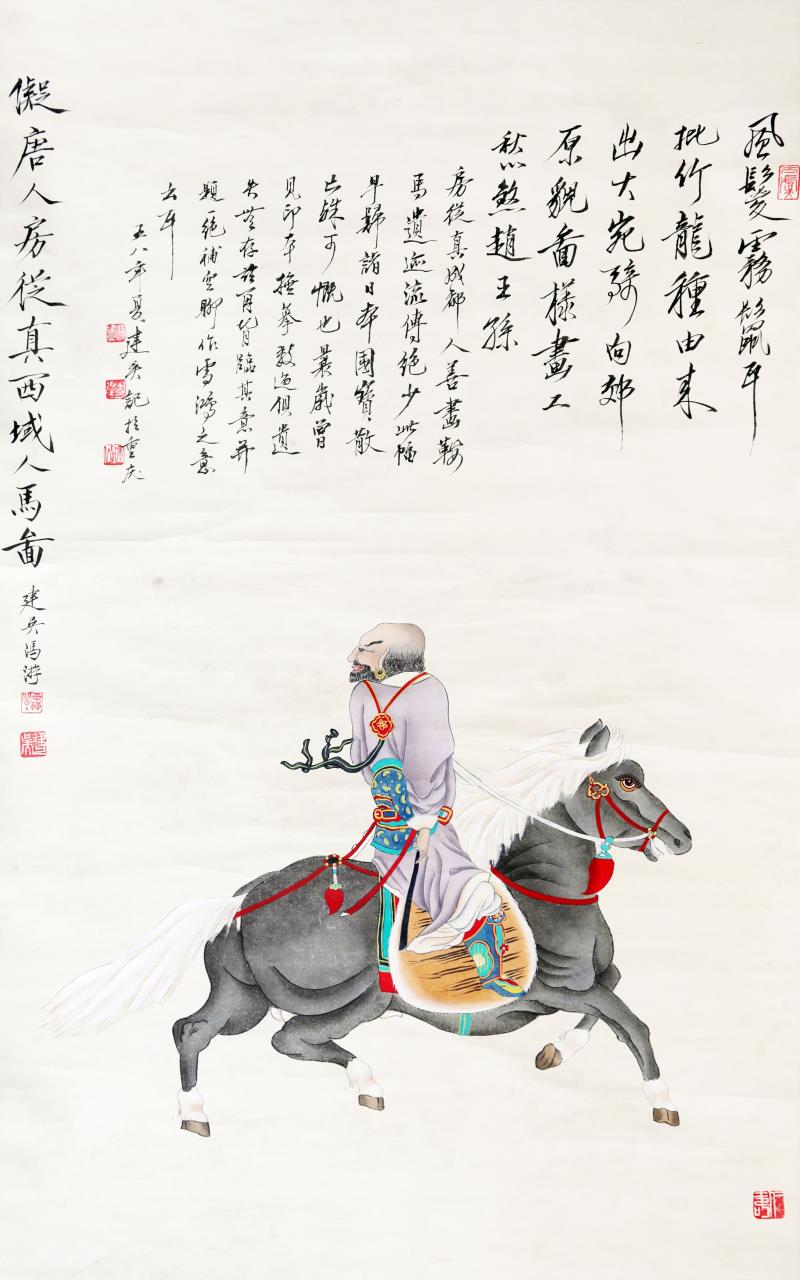 風鬃霧鬣耳
批竹龍種由来
出大宛騎向郊
原貌畣樣畫工
愁煞趙王孫
房從真成都人善畫鞍
馬遺迹流傳絕少此幅
早歸諸日本國寶散
亡殊可慨也曩歲曾
見印本撫摹數過俱遺
失無存茲再背臨其意并
題一絕補空聊作雪鴻之意
云耳
五八年夏建吳記於重慶
儗唐人房從真西域人馬啚
建吳馮游